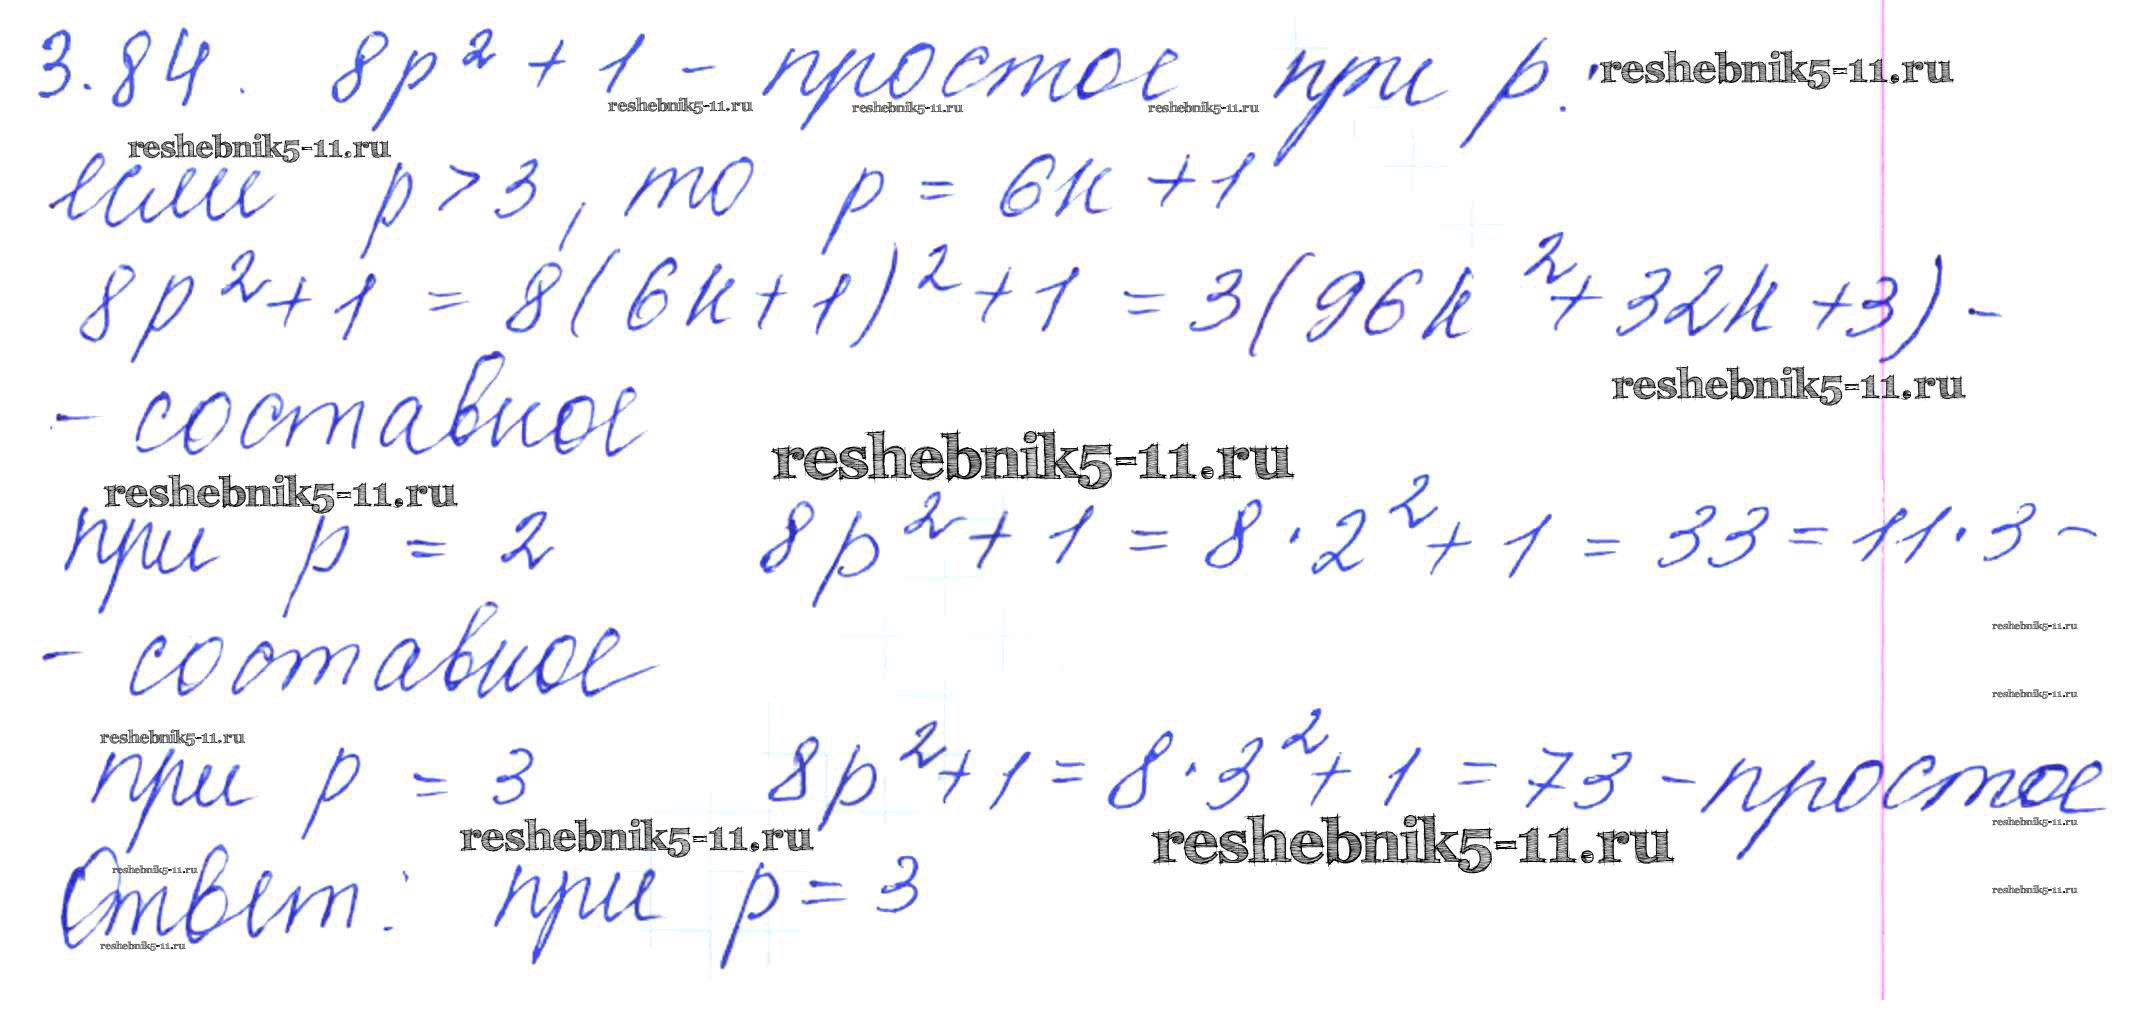 3.84. 8p² + 1 - простое при p.
reshebnik5-11.ru
reshebnik5-11.ru reshebnik5-11.ru reshebnik5-11.ru
reshebnik5-11.ru
если p > 3, то p = 6k + 1
8p² + 1 = 8(6k+1)² + 1 = 3(96k² + 32k + 3) -
reshebnik5-11.ru
- составное
reshebnik5-11.ru
reshebnik5-11.ru
при p = 2 8p² + 1 = 8 · 2² + 1 = 33 = 11 · 3 -
reshebnik5-11.ru
- составное
reshebnik5-11.ru
reshebnik5-11.ru
при p = 3 8p² + 1 = 8 · 3² + 1 = 73 - простое
reshebnik5-11.ru
reshebnik5-11.ru reshebnik5-11.ru
reshebnik5-11.ru
Ответ: при p = 3
reshebnik5-11.ru
reshebnik5-11.ru